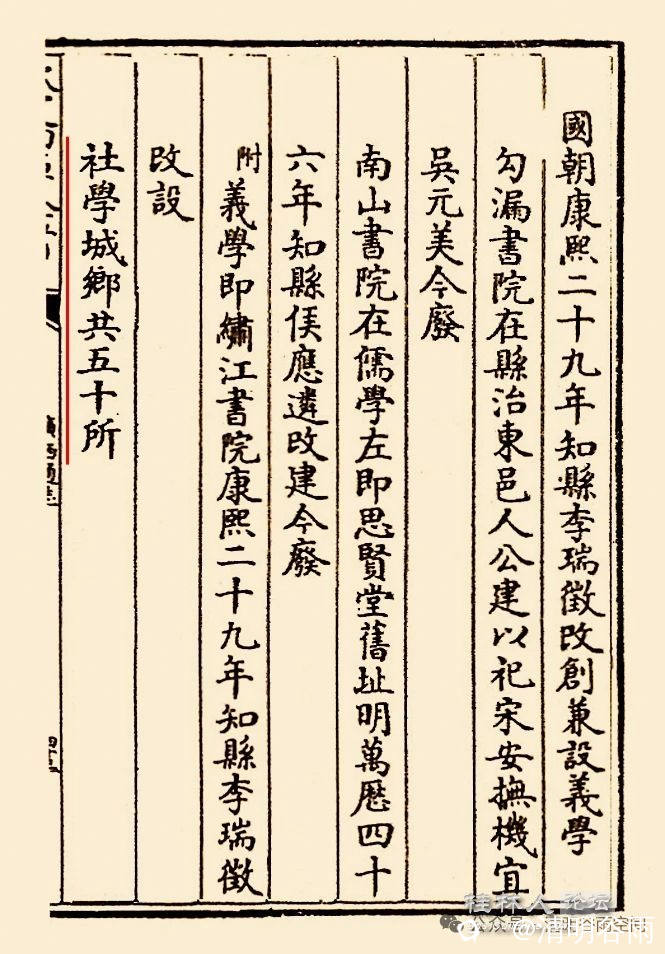 國朝康熙二十九年知縣李瑞徵改創兼設義學
勾漏書院在縣治東邑人公建以祀宋安撫機宜
吳元美今廢
南山書院在儒學左即思賢堂舊址明萬歷四十
六年知縣侯應遴改建今廢
附義學即繡江書院康熙二十九年知縣李瑞徵
改設
社學城鄉共五十所
廣西通志
桂林人论坛
公众号
@清明谷雨